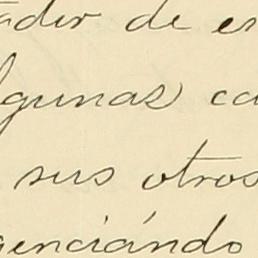 ador de es
lgunas ca
sus otros
genciándo